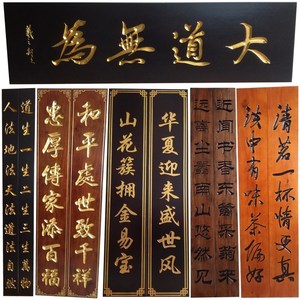 大道無為
道生一生二生三生萬物
人法地法天法道法自然
和平處世致千祥
忠厚傳家添百福
华夏迎来盛世风
山花簇拥金易宝
清茗一杯情更真
淡中有味茶偏好